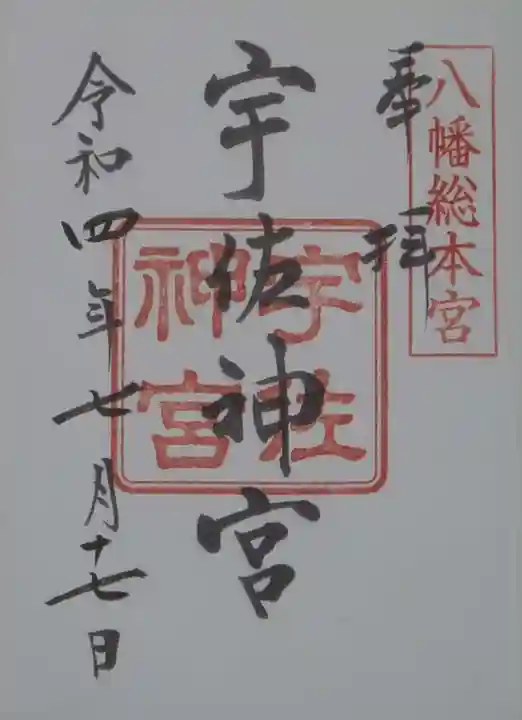 八幡総本宮
奉拝
宇佐神宮
宇佐
神宮
令和四年七月十七日